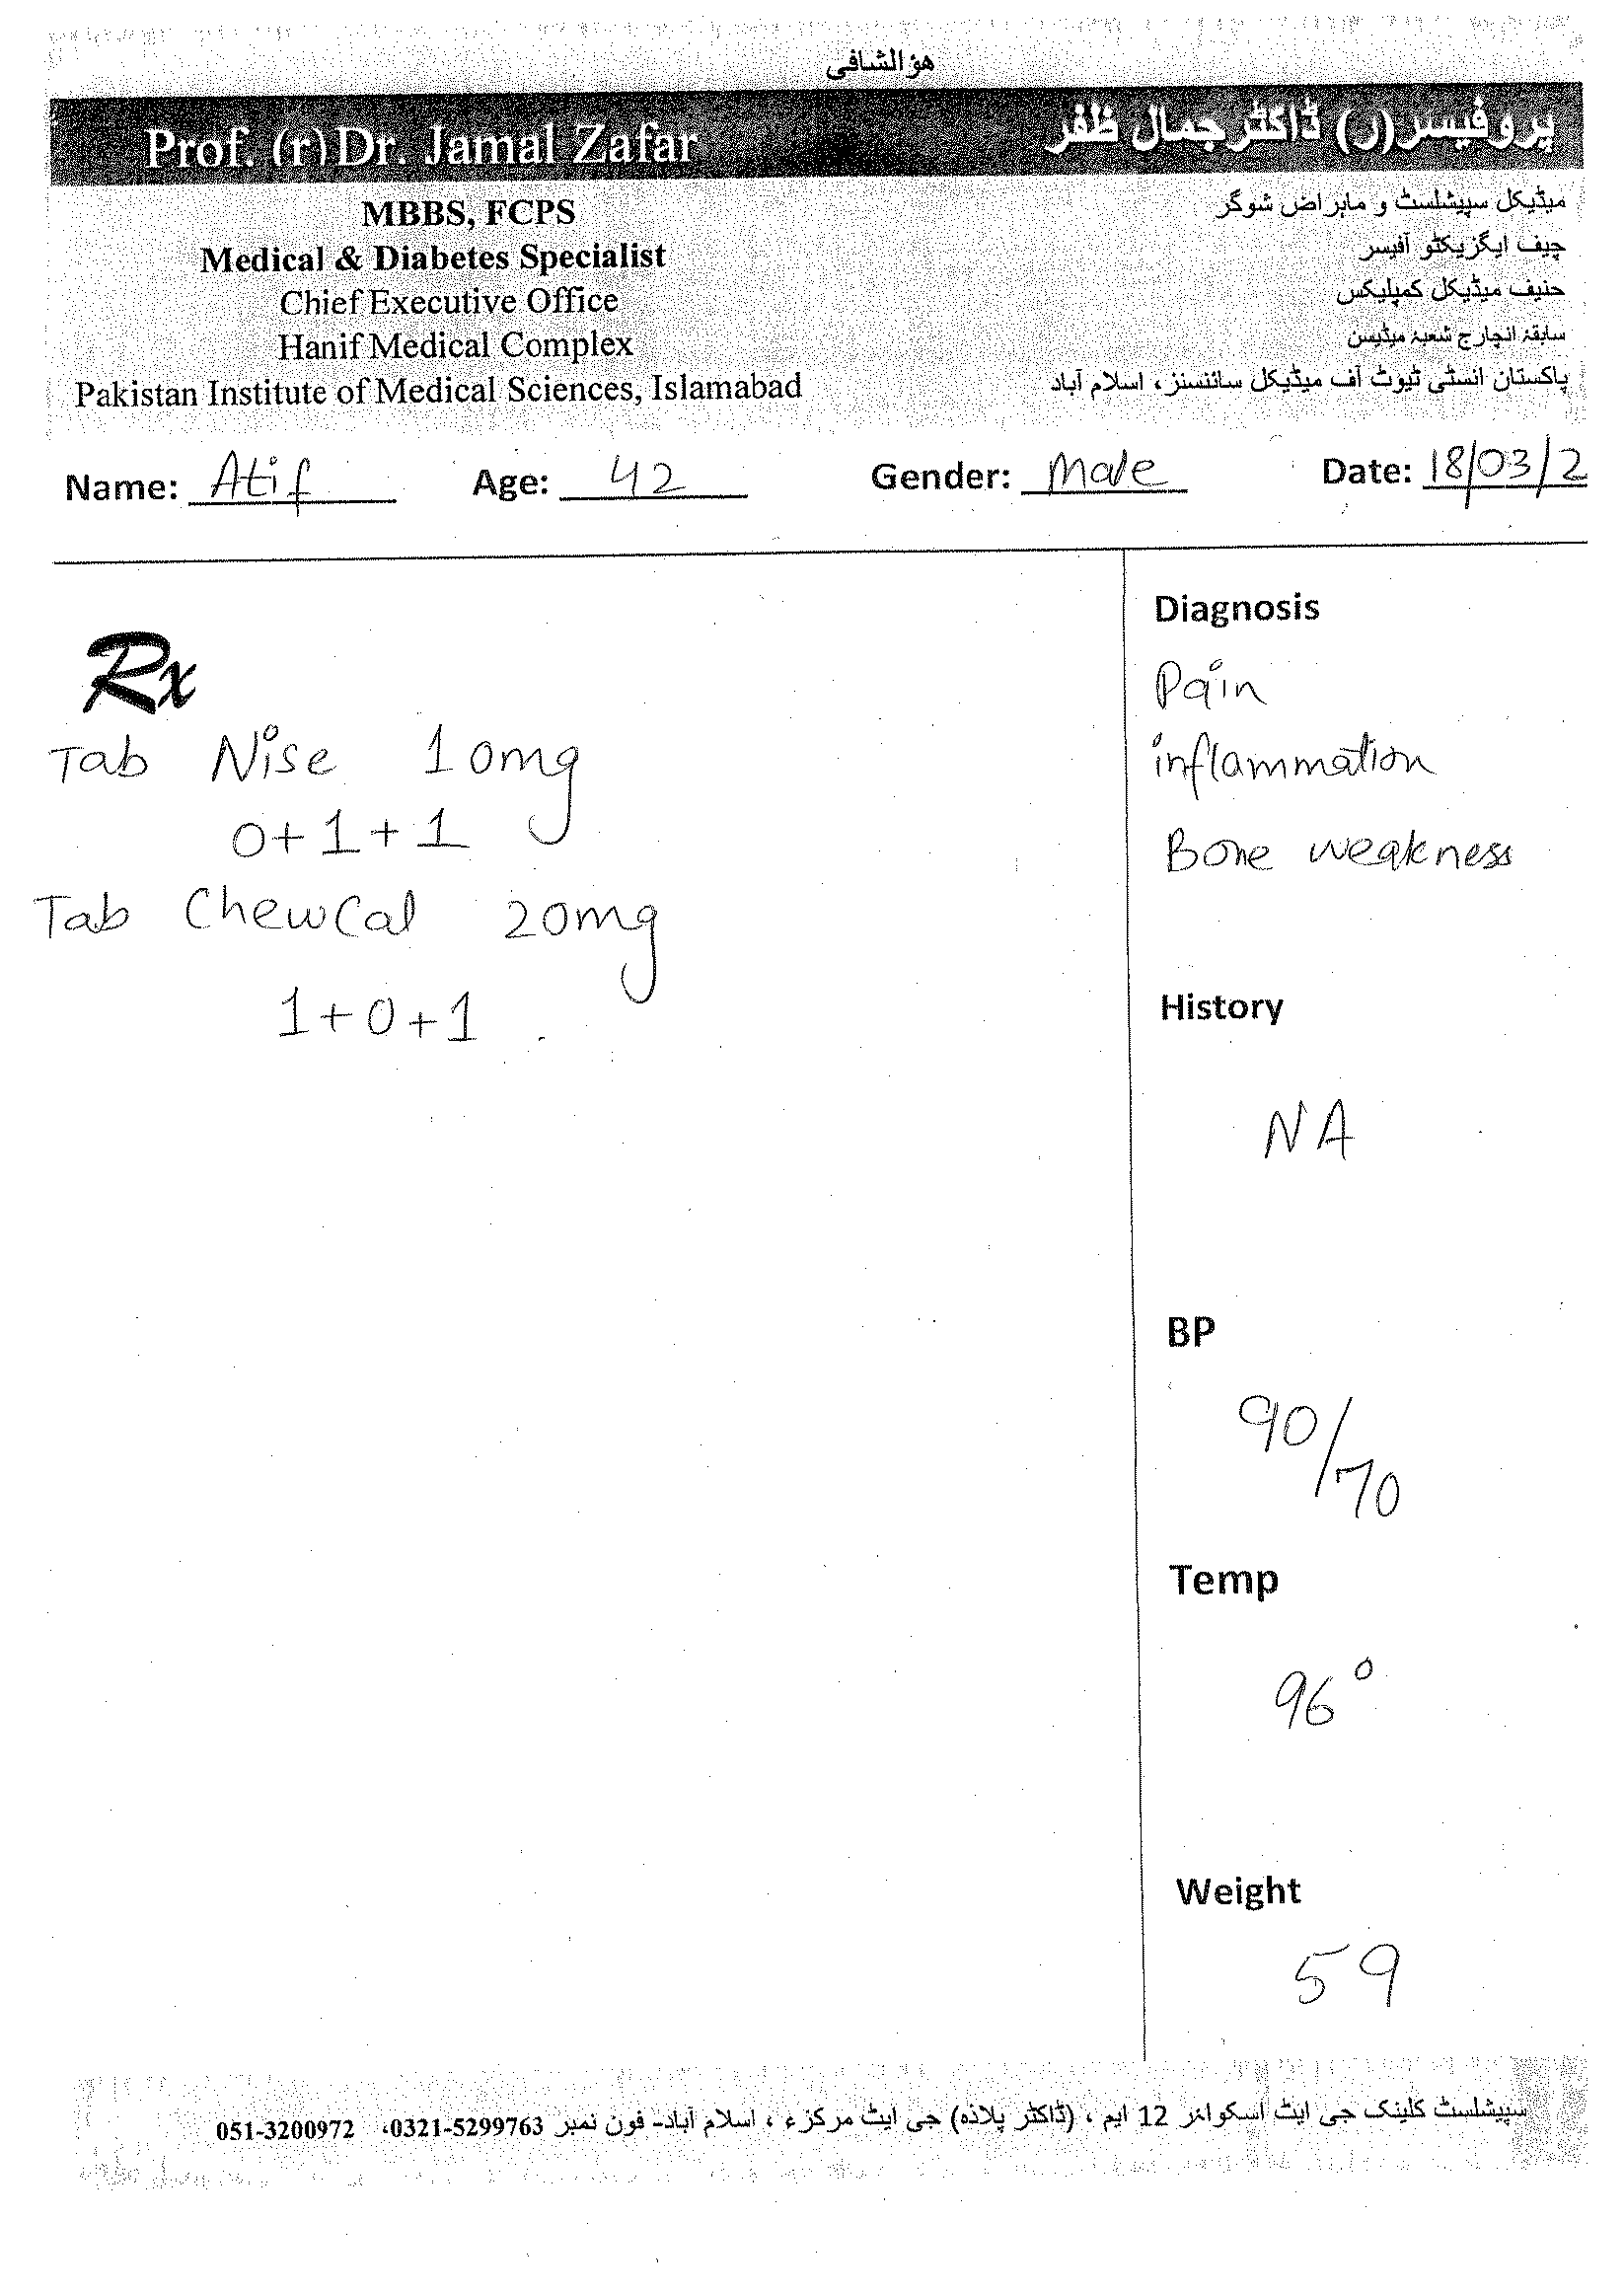 هوالشافی
Prof. (r) Dr. Jamal Zafar
پروفیسر(ر) ڈاکٹر جمال ظفر
MBBS, FCPS
Medical & Diabetes Specialist
Chief Executive Office
Hanif Medical Complex
Pakistan Institute of Medical Sciences, Islamabad
میڈیکل سپیشلسٹ و ماہراض شوگر
چیف ایگزیکٹو آفیسر
حنیف میڈیکل کمپلیکس
سابقہ انچارج شعبہ میڈیسن
پاکستان انسٹی ٹیوٹ آف میڈیکل سائنسنز، اسلام آباد
Name: Atif Age: 42 Gender: Male Date: 18/03/2
Rx
Tab Nise 10mg
0+1+1
Tab ChewCal 20mg
1+0+1
Diagnosis
Pain
inflammation
Bone weakness
History
NA
BP
90/70
Temp
96°
Weight
59
سپیشلسٹ کلینک جی ایٹ اسکوائر 12 ایم ، (ڈاکٹر پلازہ) جی ایٹ مرکزء ، اسلام آباد- فون نمبر 0321-5299763، 051-3200972